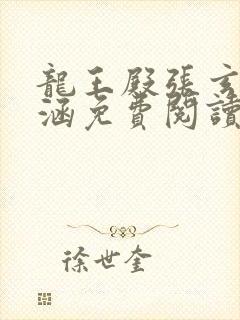 龍王殿張玄
涵免費閱讀
徐世奎